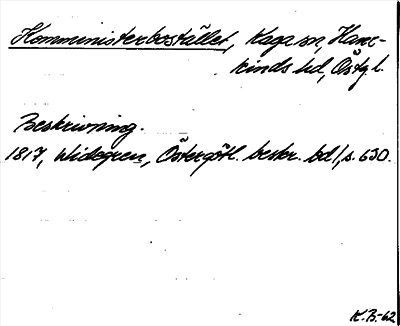 Komministerbostället, Kaga sn, Hane-
kinds hd, Östgl.
Beskrivning.
1817, Widegren, Östergötl. beskr. bd 1, s. 630.
K.B.-62